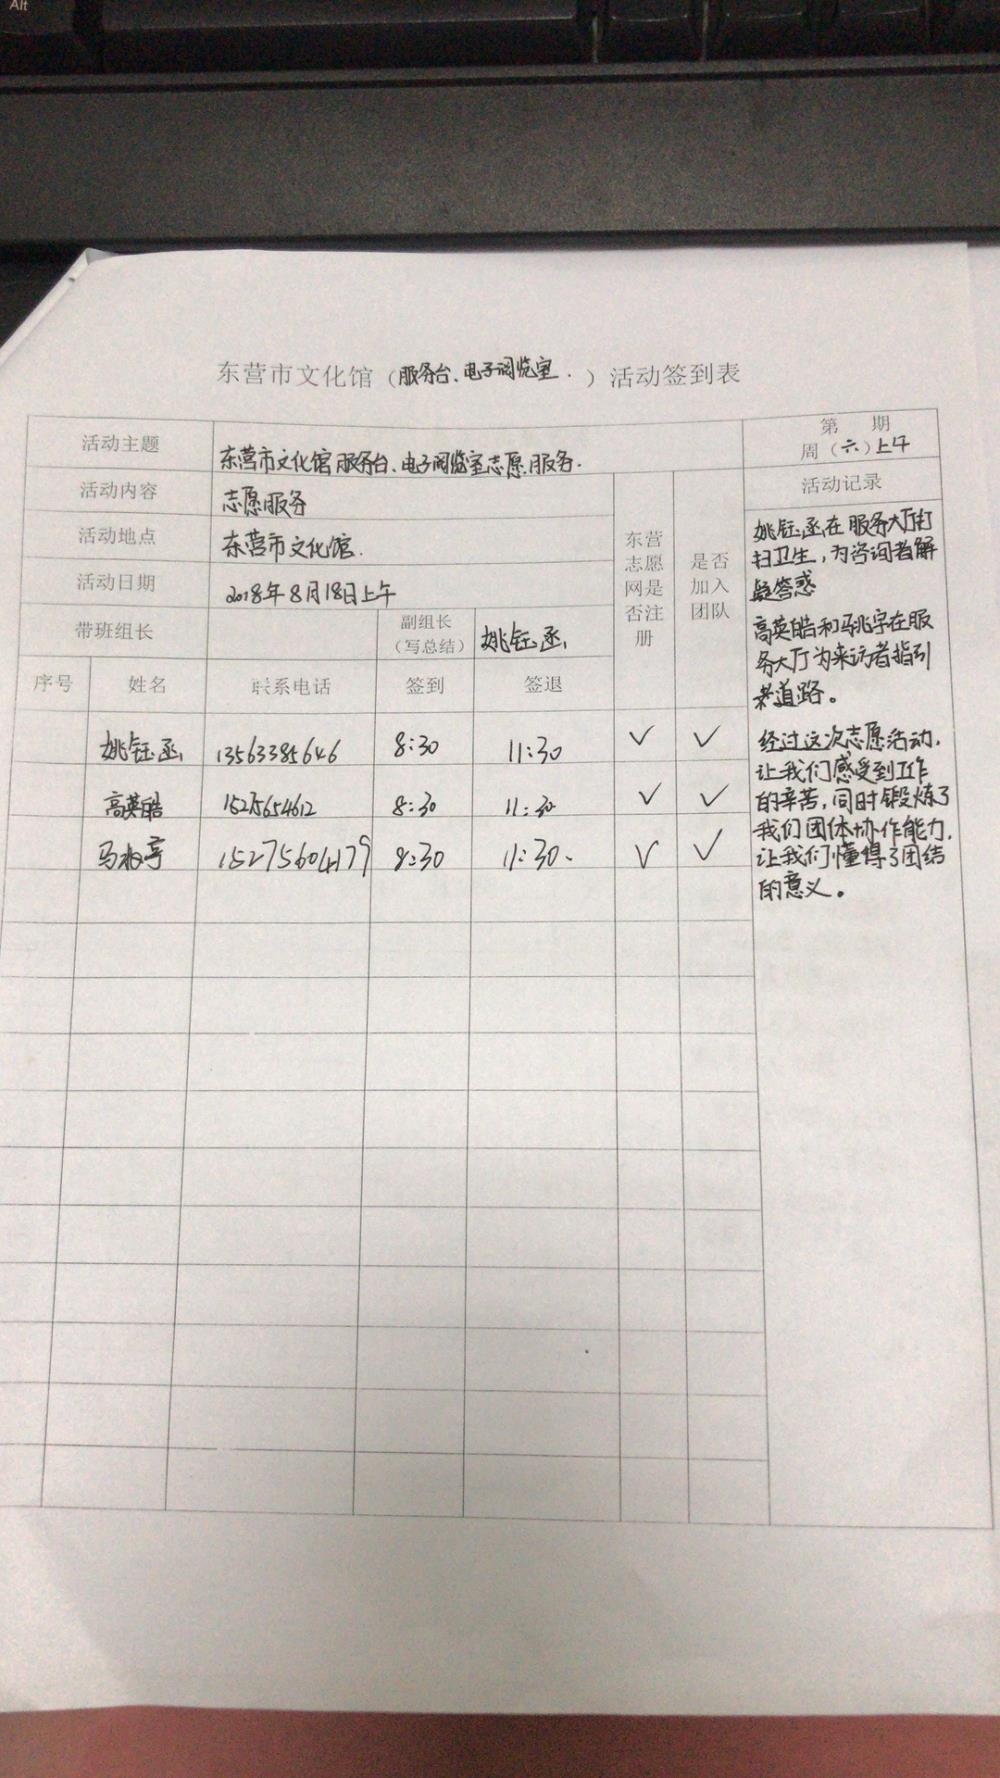 Alt
东营市文化馆（服务台、电子阅览室.）活动签到表
活动主题 东营市文化馆服务台、电子阅览室志愿服务. 第 期
周（六）上午
活动内容 志愿服务 活动记录
活动地点 东营市文化馆.
活动日期 2018年8月18日上午
东营志愿网是否注册
是否加入团队
带班组长 副组长（写总结） 姚钰丞
序号 姓名 联系电话 签到 签退
姚钰丞 13563385646 8:30 11:30 ✓ ✓
高英皓 15275654612 8:30 11:30 ✓ ✓
马 15275604179 8:30 11:30. ✓ ✓
姚钰丞在服务大厅打
扫卫生，为咨询者解
疑答惑
高英皓和马兆宇在服
务大厅为来访者指引
道路。
经过这次志愿活动，
让我们感受到工作
的辛苦，同时锻炼了
我们团体协作能力，
让我们懂得了团结
的意义。